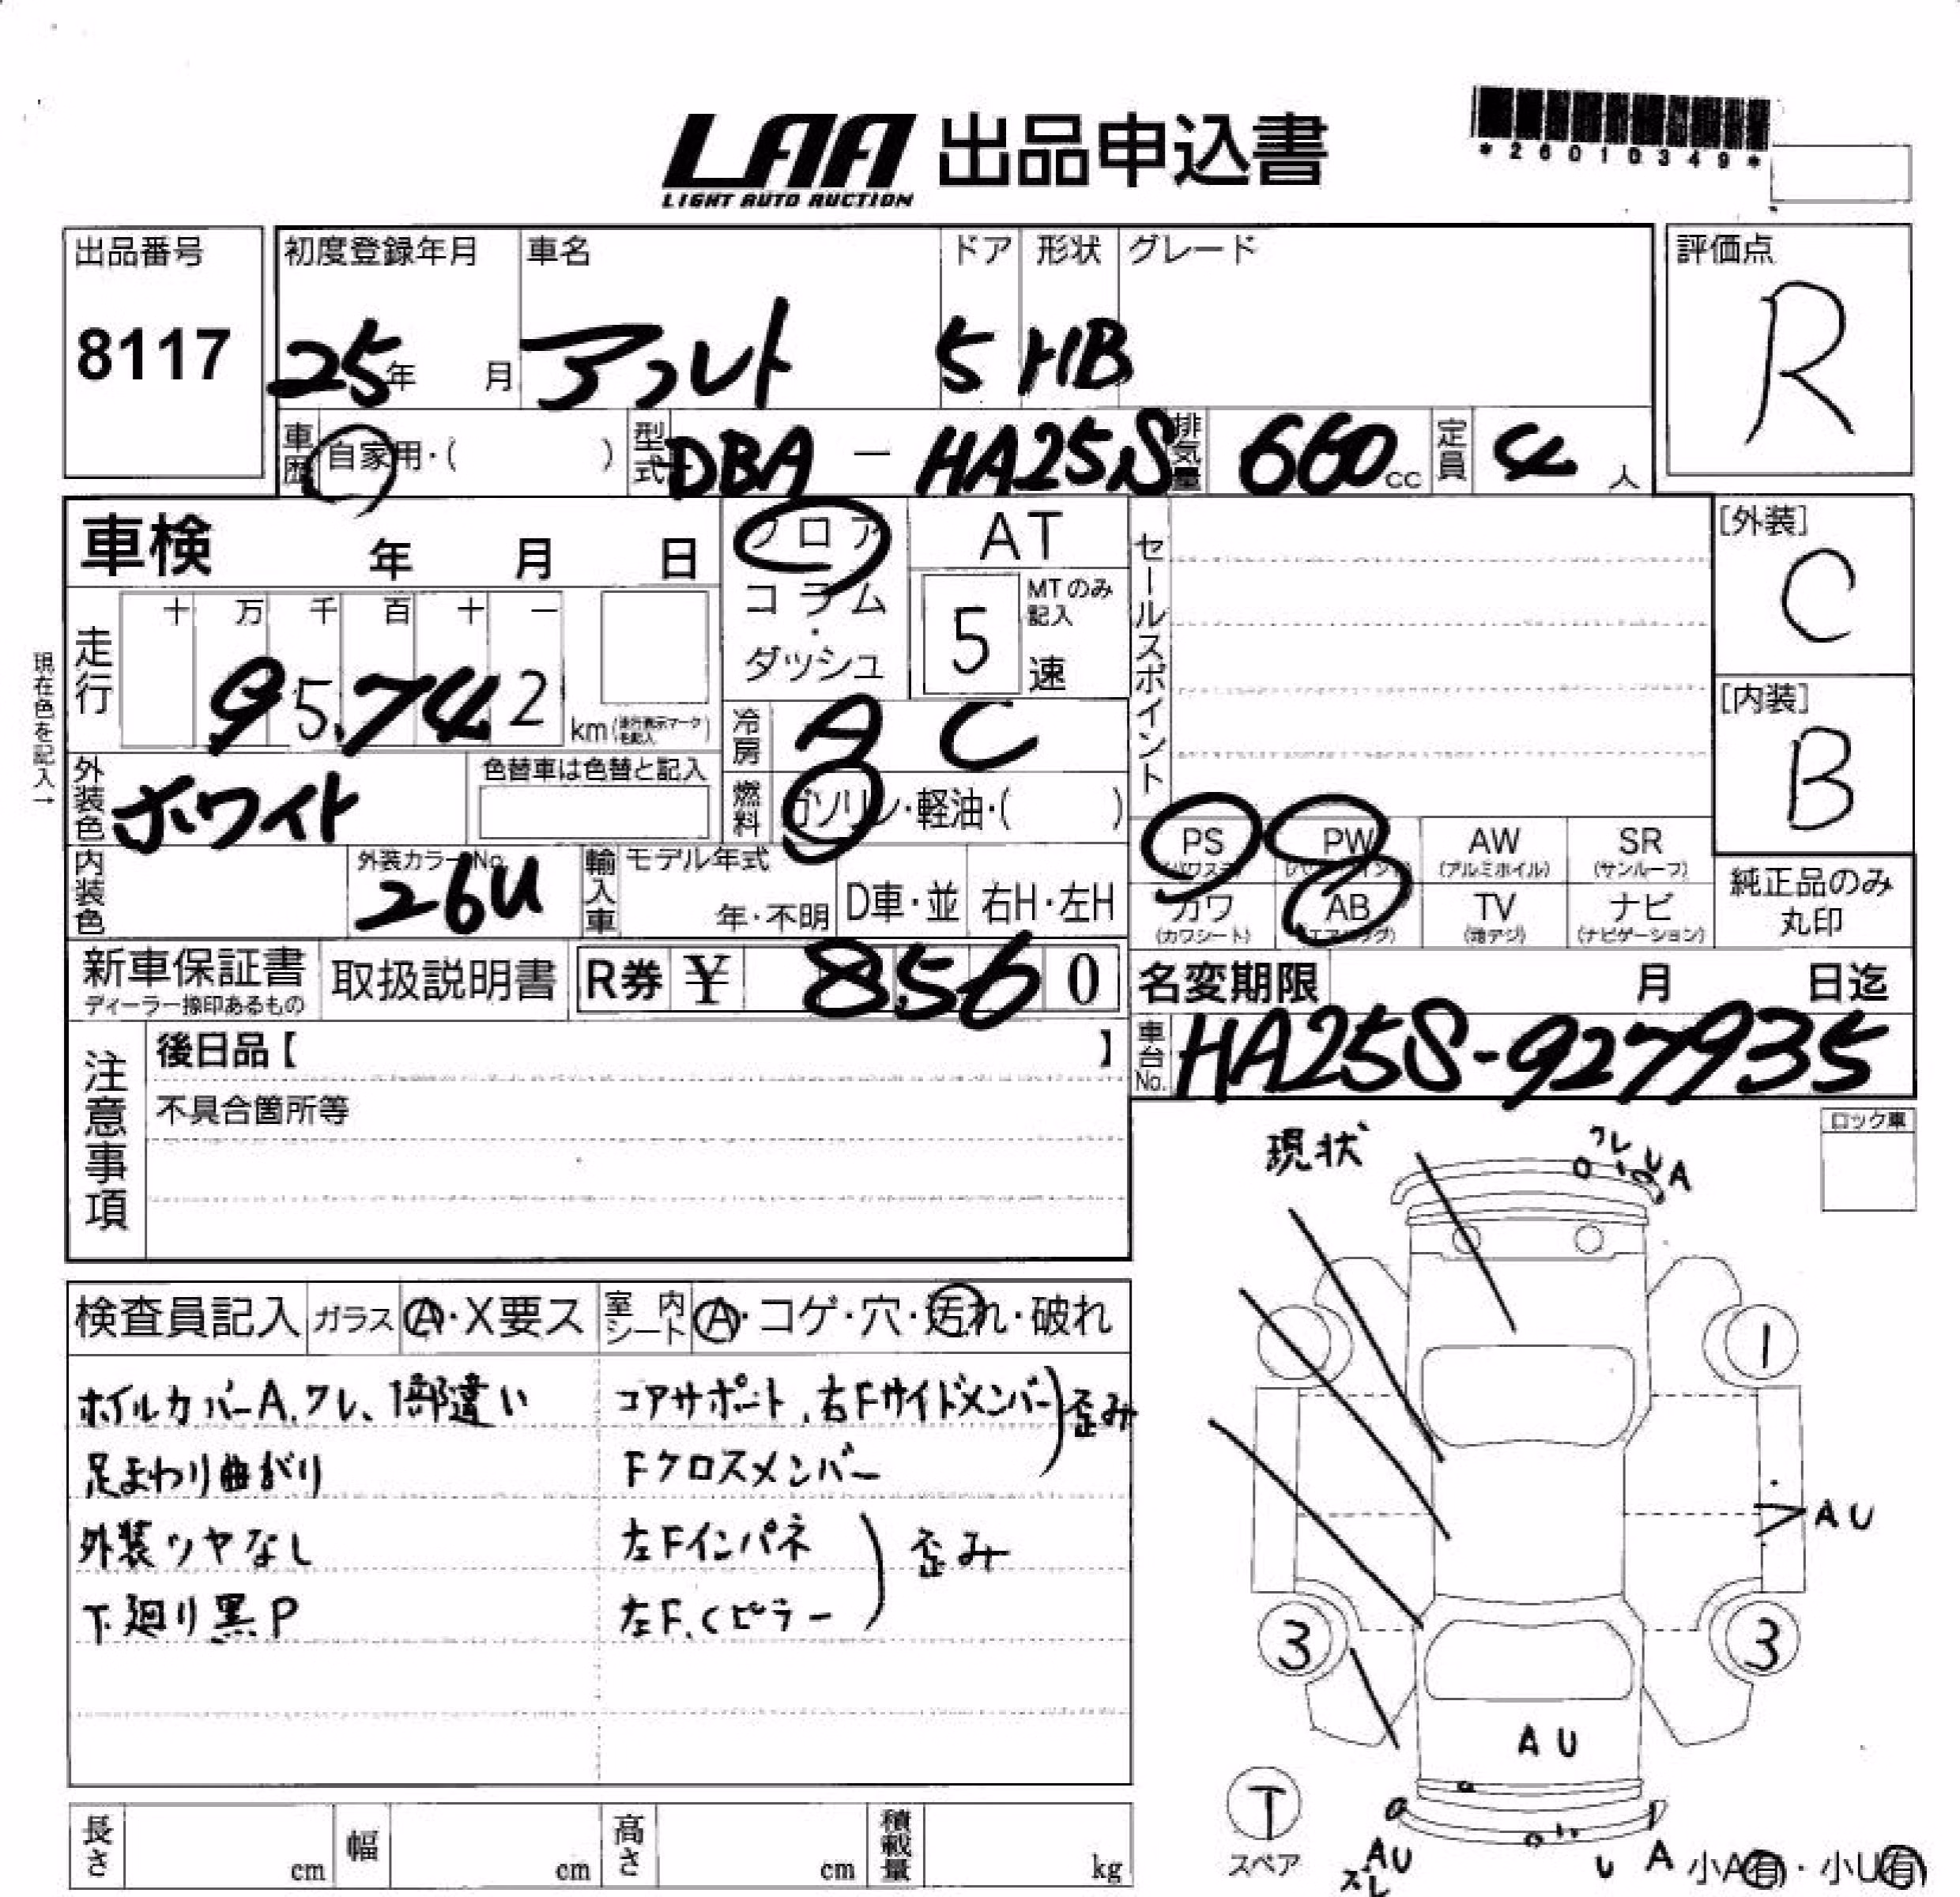 LAA 出品申込書
LIGHT AUTO AUCTION
*26010349*
出品番号 初度登録年月 車名 ドア 形状 グレード 評価点
8117 25年 月 アルト 5 HB R
車歴 自家用・( ) 型式 DBA - HA25S 排気量 660cc 定員 4人
車検 年 月 日 フロア AT セールスポイント [外装]
コラム・ダッシュ 5 MTのみ記入 速 C
現在色を記入→
走行 十 万 千 百 十 一
95,742 km
冷房 AC [内装]
外装色 ホワイト 色替車は色替と記入 燃料 ガソリン・軽油・( ) B
PS PW AW (アルミホイル) SR (サンルーフ)
内装色 外装カラーNo. 26U 輸入車 モデル年式 年・不明 D車・並 右H・左H
カワ (カワシート) AB TV (地デジ) ナビ (ナビゲーション) 純正品のみ丸印
新車保証書 ディーラー捺印あるもの 取扱説明書 R券 ¥ 8,560 名変期限 月 日迄
車台No. HA25S-927935
注意事項 後日品【 】
不具合箇所等
ロック車
現状
ワレ U A
検査員記入 ガラス A・X要ス 室内シート A・コゲ・穴・汚れ・破れ
ホイルカバーA、ワレ、1部違い コアサポート、右Fサイドメンバー 歪み
足まわり曲がり Fクロスメンバー
外装ツヤなし 左Fインパネ 歪み
下廻り黒P 左F、Cピラー
1
AU
3 3
AU
T
スペア
AU
ズレ
U A 小A有・小U有
長さ cm 幅 cm 高さ cm 積載量 kg